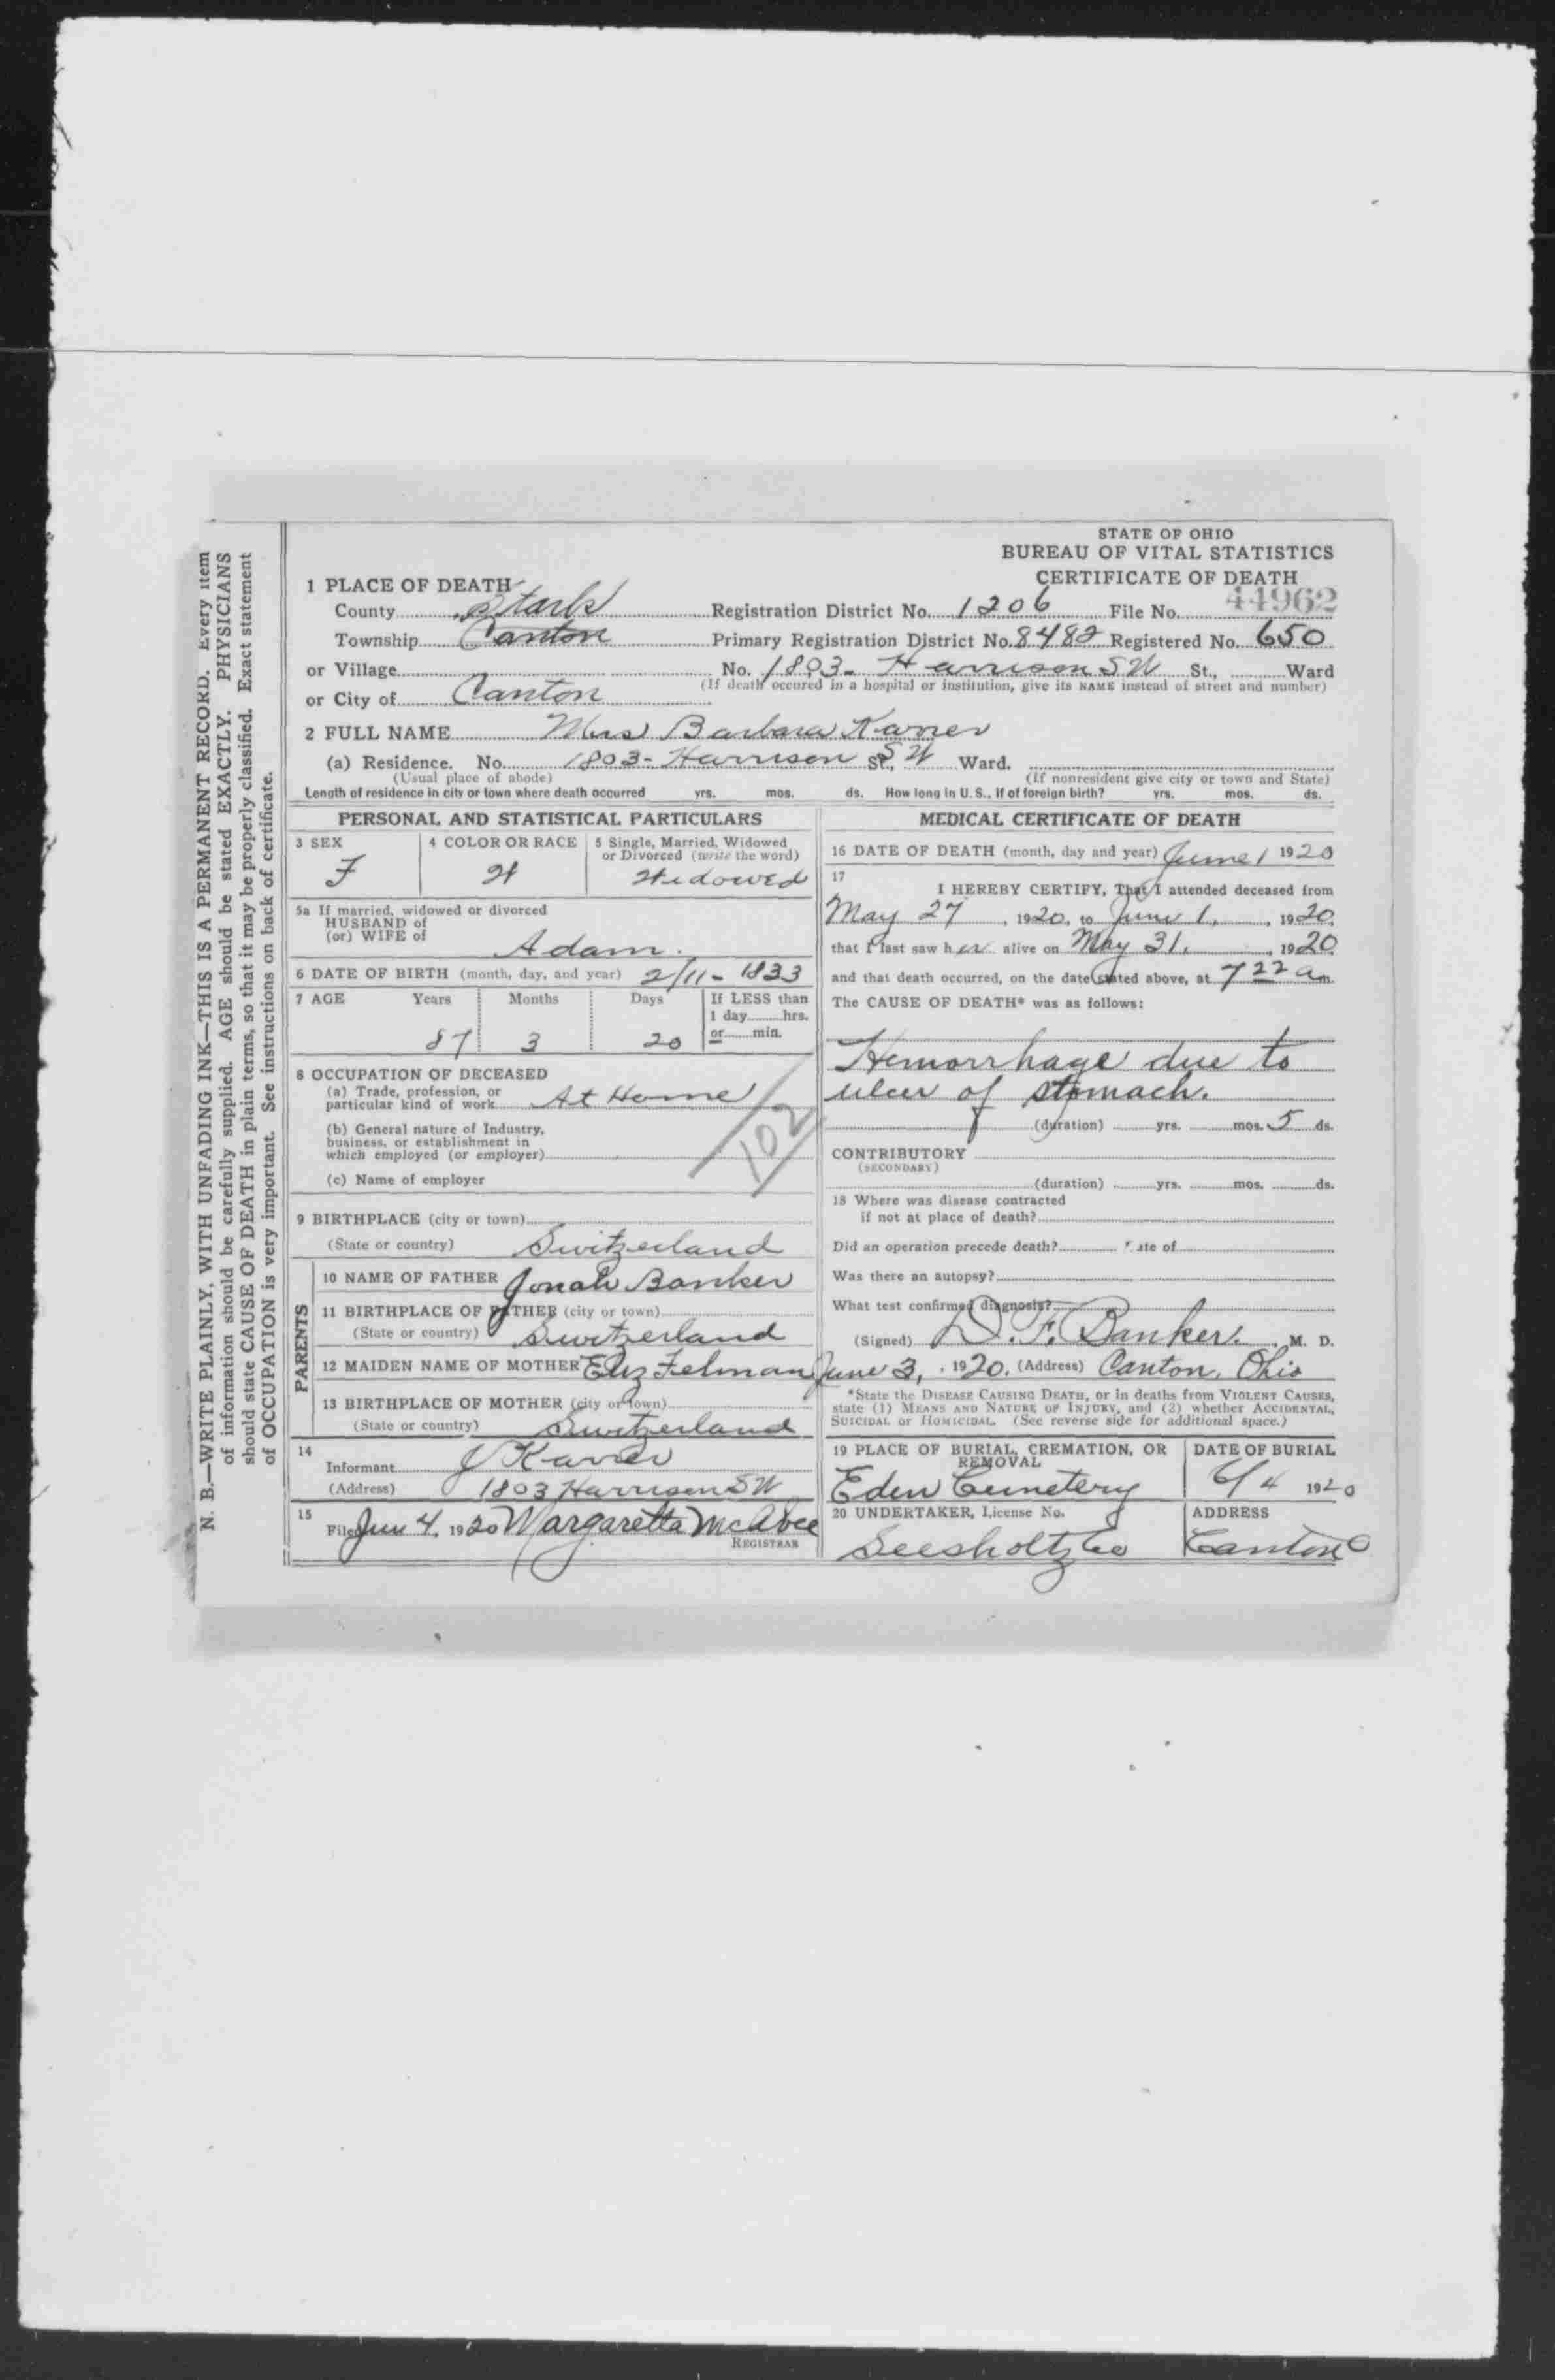 STATE OF OHIO
BUREAU OF VITAL STATISTICS
CERTIFICATE OF DEATH
1 PLACE OF DEATH
County Stark Registration District No. 1206 File No. 44962
Township Canton Primary Registration District No. 8482 Registered No. 650
or Village No. 1803- Harrison SW St., Ward
(If death occured in a hospital or institution, give its NAME instead of street and number)
or City of Canton
2 FULL NAME Mrs Barbara
(a) Residence. No. 1803- Harrison St., SW Ward.
(Usual place of abode) (If nonresident give city or town and State)
Length of residence in city or town where death occurred yrs. mos. ds. How long in U. S., if of foreign birth? yrs. mos. ds.
PERSONAL AND STATISTICAL PARTICULARS
3 SEX 4 COLOR OR RACE 5 Single, Married, Widowed
or Divorced (write the word)
F W Widowed
5a If married, widowed or divorced
HUSBAND of
(or) WIFE of
Adam.
6 DATE OF BIRTH (month, day, and year) 2/11- 1833
7 AGE Years Months Days If LESS than
1 day hrs.
or min.
87 3 20
8 OCCUPATION OF DECEASED
(a) Trade, profession, or
particular kind of work At Home
102
(b) General nature of Industry,
business, or establishment in
which employed (or employer)
(c) Name of employer
9 BIRTHPLACE (city or town)
(State or country) Switzerland
PARENTS
10 NAME OF FATHER Jonah Banker
11 BIRTHPLACE OF FATHER (city or town)
(State or country) Switzerland
12 MAIDEN NAME OF MOTHER Eliz Felman
13 BIRTHPLACE OF MOTHER (city or town)
(State or country) Switzerland
14
Informant J
(Address) 1803 Harrison SW
15
Filed Jun 4, 1920 Margaretta McAbee
REGISTRAR
MEDICAL CERTIFICATE OF DEATH
16 DATE OF DEATH (month, day and year) June 1 1920
17
I HEREBY CERTIFY, That I attended deceased from
May 27, 1920, to June 1, 1920,
that I last saw her alive on May 31, 1920,
and that death occurred, on the date stated above, at 7 22 a m.
The CAUSE OF DEATH* was as follows:
Hemorrhage due to
ulcer of stomach.
(duration) yrs. mos. 5 ds.
CONTRIBUTORY
(SECONDARY)
(duration) yrs. mos. ds.
18 Where was disease contracted
if not at place of death?
Did an operation precede death? Date of
Was there an autopsy?
What test confirmed diagnosis?
(Signed) D. F. Banker, M. D.
June 3, 1920. (Address) Canton, Ohio
*State the DISEASE CAUSING DEATH, or in deaths from VIOLENT CAUSES,
state (1) MEANS AND NATURE OF INJURY, and (2) whether ACCIDENTAL,
SUICIDAL or HOMICIDAL. (See reverse side for additional space.)
19 PLACE OF BURIAL, CREMATION, OR
REMOVAL
DATE OF BURIAL
Eden Cemetery 6/4 1920
20 UNDERTAKER, License No. ADDRESS
Seesholtz Co Canton O
N. B.—WRITE PLAINLY, WITH UNFADING INK—THIS IS A PERMANENT RECORD. Every item
of information should be carefully supplied. AGE should be stated EXACTLY. PHYSICIANS
should state CAUSE OF DEATH in plain terms, so that it may be properly classified. Exact statement
of OCCUPATION is very important. See instructions on back of certificate.